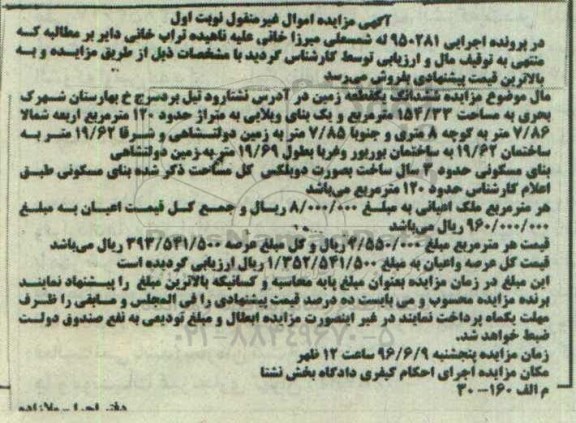 آگهی مزایده اموال غیرمنقول نوبت اول
در پرونده اجرایی ۹۵۰۲۸۱ له شمسعلی میرزا خانی علیه ناهیده تراب خانی دایر بر مطالبه که
منتهی به توقیف مال و ارزیابی توسط کارشناس گردید با مشخصات ذیل از طریق مزایده و به
بالاترین قیمت پیشنهادی بفروش می‌رسد
مال موضوع مزایده ششدانگ یکقطعه زمین در آدرس نشتارود تیل بردسرج خ بهارستان شهرک
بحری به مساحت ۱۵۴/۳۳ مترمربع و یک بنای ویلایی به متراژ حدود ۱۲۰ مترمربع اربعه شمالا
۷/۸۶ متر به کوچه ۸ متری و جنوبا ۷/۸۵ متر به زمین دولتشاهی و شرقا ۱۹/۶۲ متر به
ساختمان ۱۹/۶۲ به ساختمان بوربور وغربا بطول ۱۹/۶۹ متر به زمین دولتشاهی
بنای مسکونی حدود ۲ سال ساخت بصورت دوبلکس کل مساحت ذکر شده بنای مسکونی طبق
اعلام کارشناس حدود ۱۲۰ مترمربع می‌باشد
هر مترمربع ملک اعیانی به مبلغ ۸/۰۰۰/۰۰۰ ریال و جمع کل قیمت اعیان به مبلغ
۹۶۰/۰۰۰/۰۰۰ ریال می‌باشد
قیمت هر مترمربع مبلغ ۲/۵۵۰/۰۰۰ ریال و کل مبلغ عرصه ۳۹۳/۵۴۱/۵۰۰ ریال می‌باشد
قیمت کل عرصه واعیان به مبلغ ۱/۳۵۲/۵۴۱/۵۰۰ ریال ارزیابی گردیده است
این مبلغ در زمان مزایده بعنوان مبلغ پایه محاسبه و کسانیکه بالاترین مبلغ را پیشنهاد نمایند
برنده مزایده محسوب و می بایست ده درصد قیمت پیشنهادی را فی المجلس و مابقی را ظرف
مهلت یکماه پرداخت نمایند در غیر اینصورت مزایده ابطال و مبلغ تودیعی به نفع صندوق دولت
ضبط خواهد شد.
زمان مزایده پنجشنبه ۹۶/۶/۹ ساعت ۱۲ ظهر
مکان مزایده اجرای احکام کیفری دادگاه بخش نشتا
م الف ۱۶۰-۳۰
دفتر اجرا - ملازاده